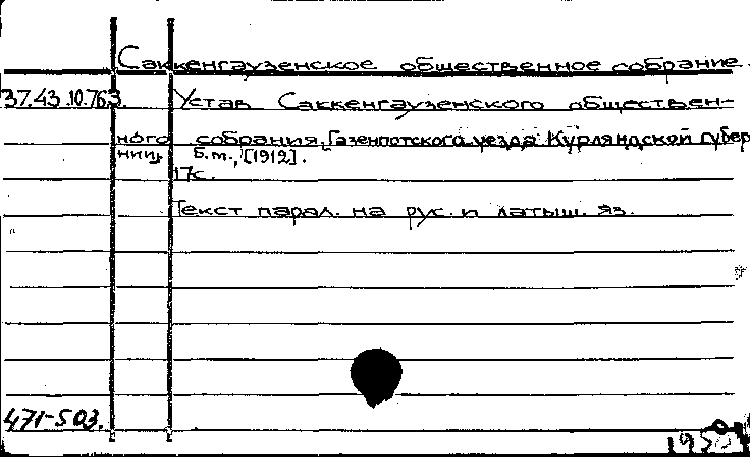 Саккенгаузенское общественное собрание.
37.43.10.763. Устав Саккенгаузенского обществен-
ного собрания, Газенпотского уезда Курляндской губер
нии, Б.т., [1912].
17с.
Текст парал. на рус. и латыш. яз.
471-503.